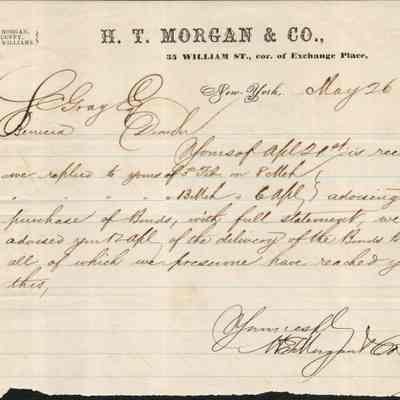 MORGAN,
WILLIAMS
H. T. MORGAN & CO.,
35 WILLIAM ST., cor. of Exchange Place,
New-York, May 26
Gray Eq
Benicia
Yours of Apl 21st is rec
we replied to yours of 5 Feb on 8 Mch
" " " " 13 Mch " 6 Apl } advising
purchase of Bonds, with full statement, we
advised you 12 Apl of the delivery of the Bonds to
all of which we presume have reached y
this,
Yours respy
H T Morgan & Co